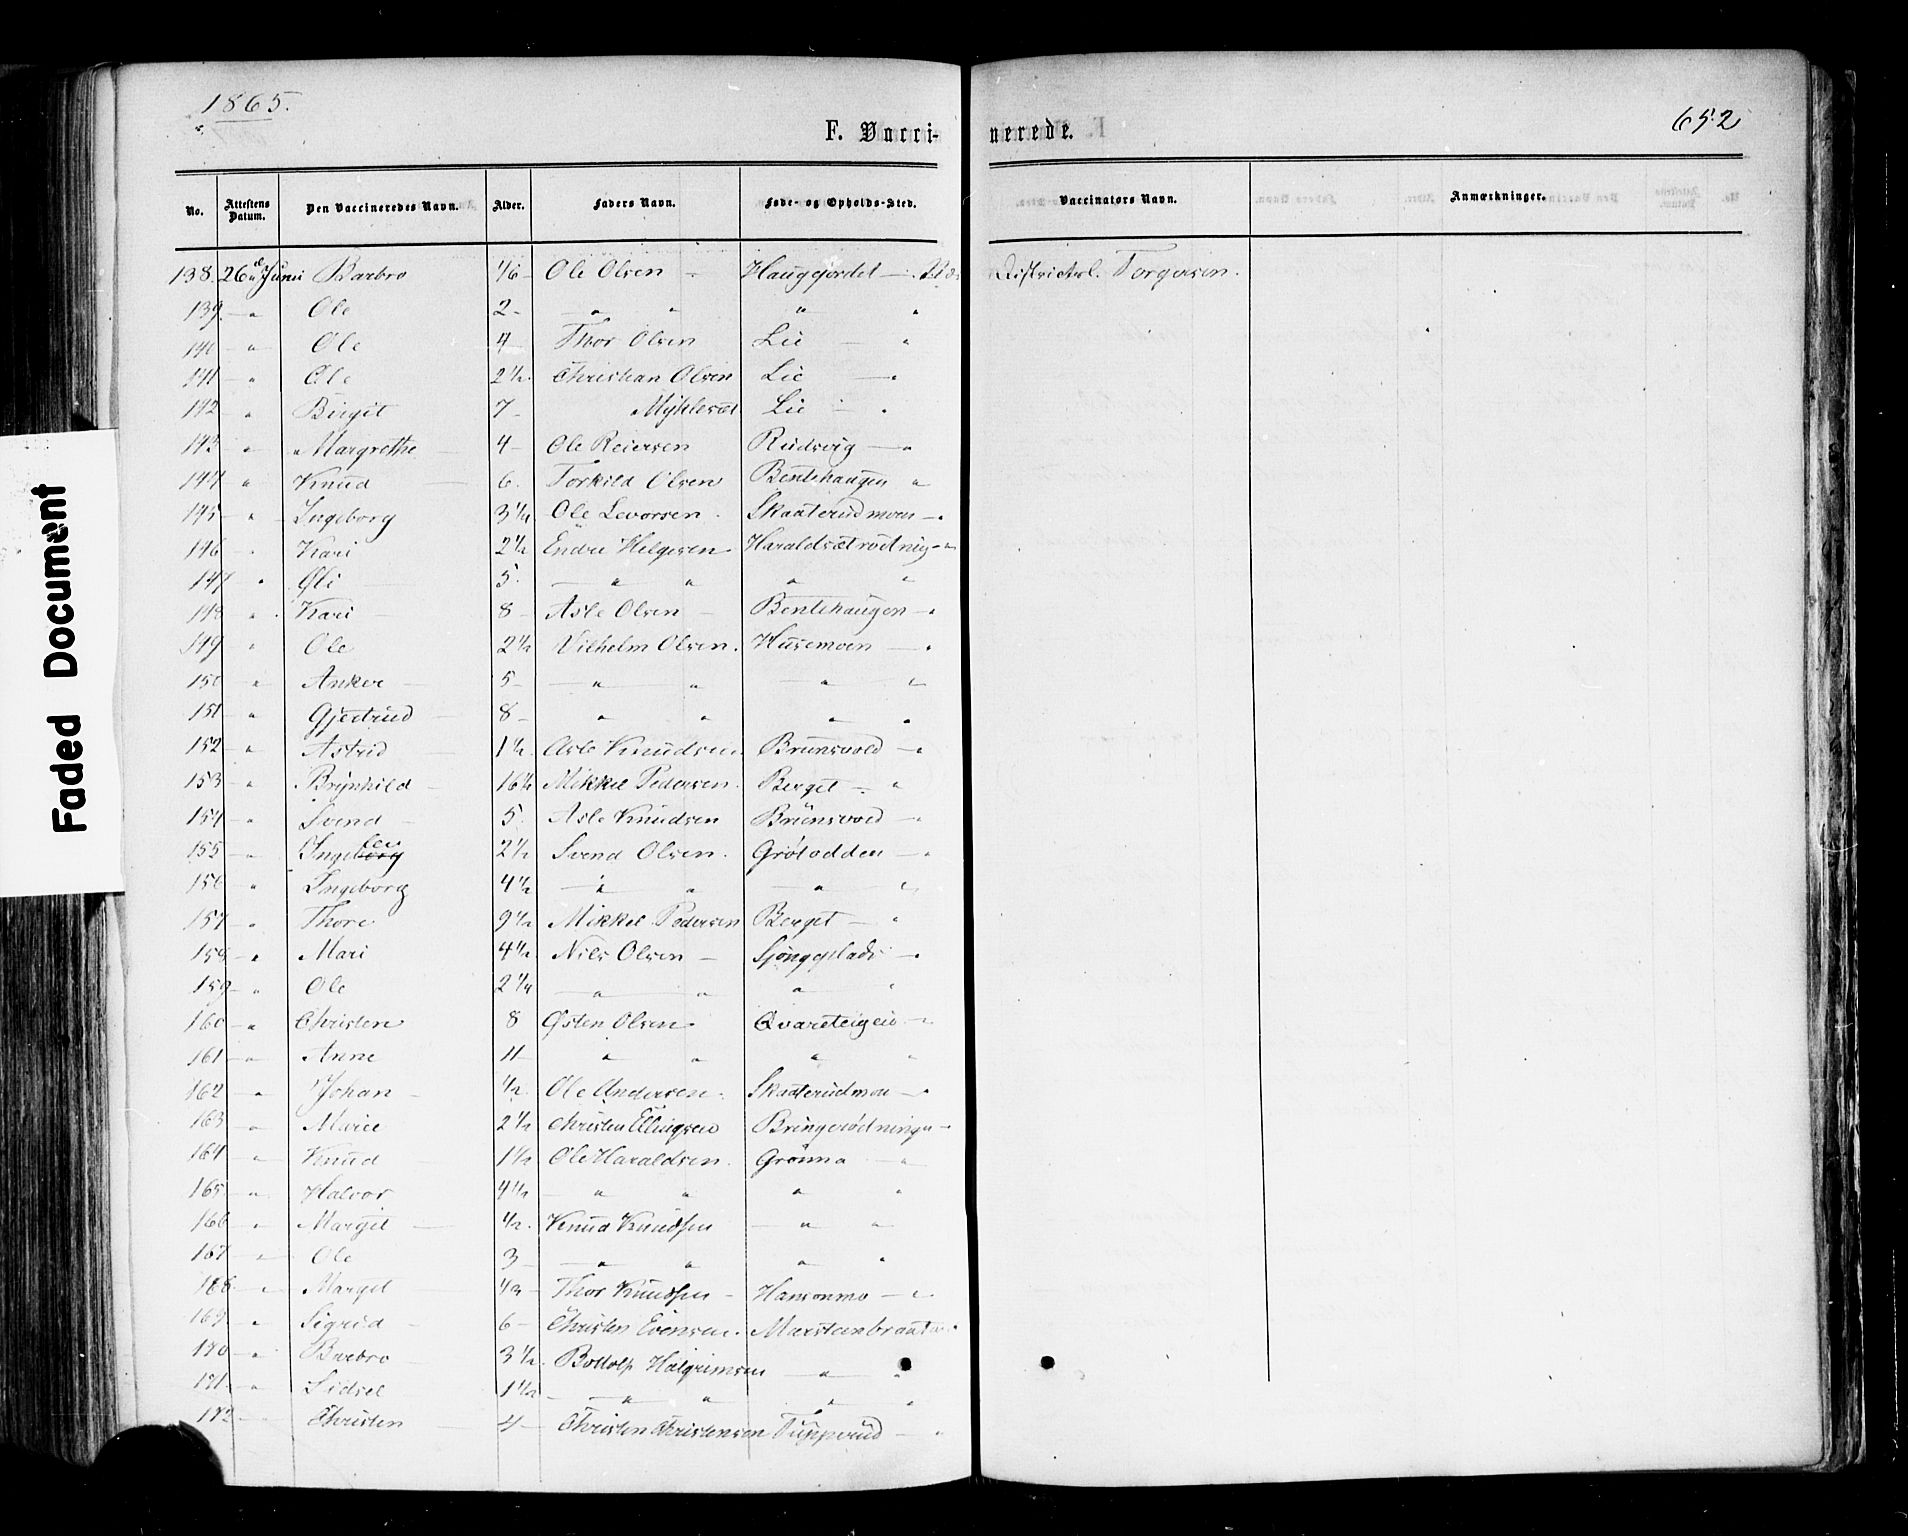 1865.
652
F. Vacci- nerede.
No. Attestens Datum. Den Vaccineredes Navn. Alder. Faders Navn. Føde- og Opholds-Sted. Vaccinators Navn. Anmærkninger.
138. 26 Juni Barbro 1/6 Ole Olsen Hauggjordet Districtsl. Torgersen.
139 " Ole 2 " " " "
140 " Ole 4 Thor Olsen Lie "
141 " Ole 2 1/2 Christian Olsen Lie "
142 " Birgit 7 Lie "
143 " Margrethe 4 Ole Reiersen Rudsvig "
144 " Knud 6 Torkild Olsen Bentehaugen "
145 " Ingeborg 3 1/4 Ole Levorsen Skaaterudmoen "
146 " Kari 2 1/2 Endre Helgesen "
147 " Oli 5 " " " "
148 " Kari 8 Asle Olsen Bentehaugen "
149 " Ole 2 1/2 Vilhelm Olsen Husemoen "
150 " Anker 5 " " " "
151 " Gjertrud 8 " " " "
152 " Astrid 1 1/2 Asle Knudsen Brunsvold "
153 " Brynhild 16 1/2 Mikkel Pedersen Berget "
154 " Svend 5 Asle Knudsen Brunsvold "
155 " Ingeborg lev 2 1/2 Svend Olsen Grøtodden "
156 " Ingeborg 4 1/2 " " " "
157 " Thore 9 1/2 Mikkel Pedersen Berget "
158 " Mari 4 1/2 Nils Olsen "
159 " Ole 2 1/4 " " " "
160 " Christen 8 Østen Olsen Qvareteigen "
161 " Anne 11 " " " "
162 " Johan 1/2 Ole Andersen Skaaterudmoen "
163 " Marie 2 1/2 Christen Ellingsen "
164 " Knud 1 1/2 Ole Haraldsen Grønna "
165 " Halvor 4 1/2 " " " "
166 " Margit 1/2 Knud Knudsen " "
167 " Ole 3 " " " "
168 " Margit Thor Knudsen Hansonmo "
169 " Sigrid 6 Christen Evensen Marsteinbraaten "
170 " Barbro 3 1/2 Bottolf Halgrimsen " "
171 " Sidsel 1 1/2 " " " "
172 Christen 4 Christen Christensen "
Faded Document